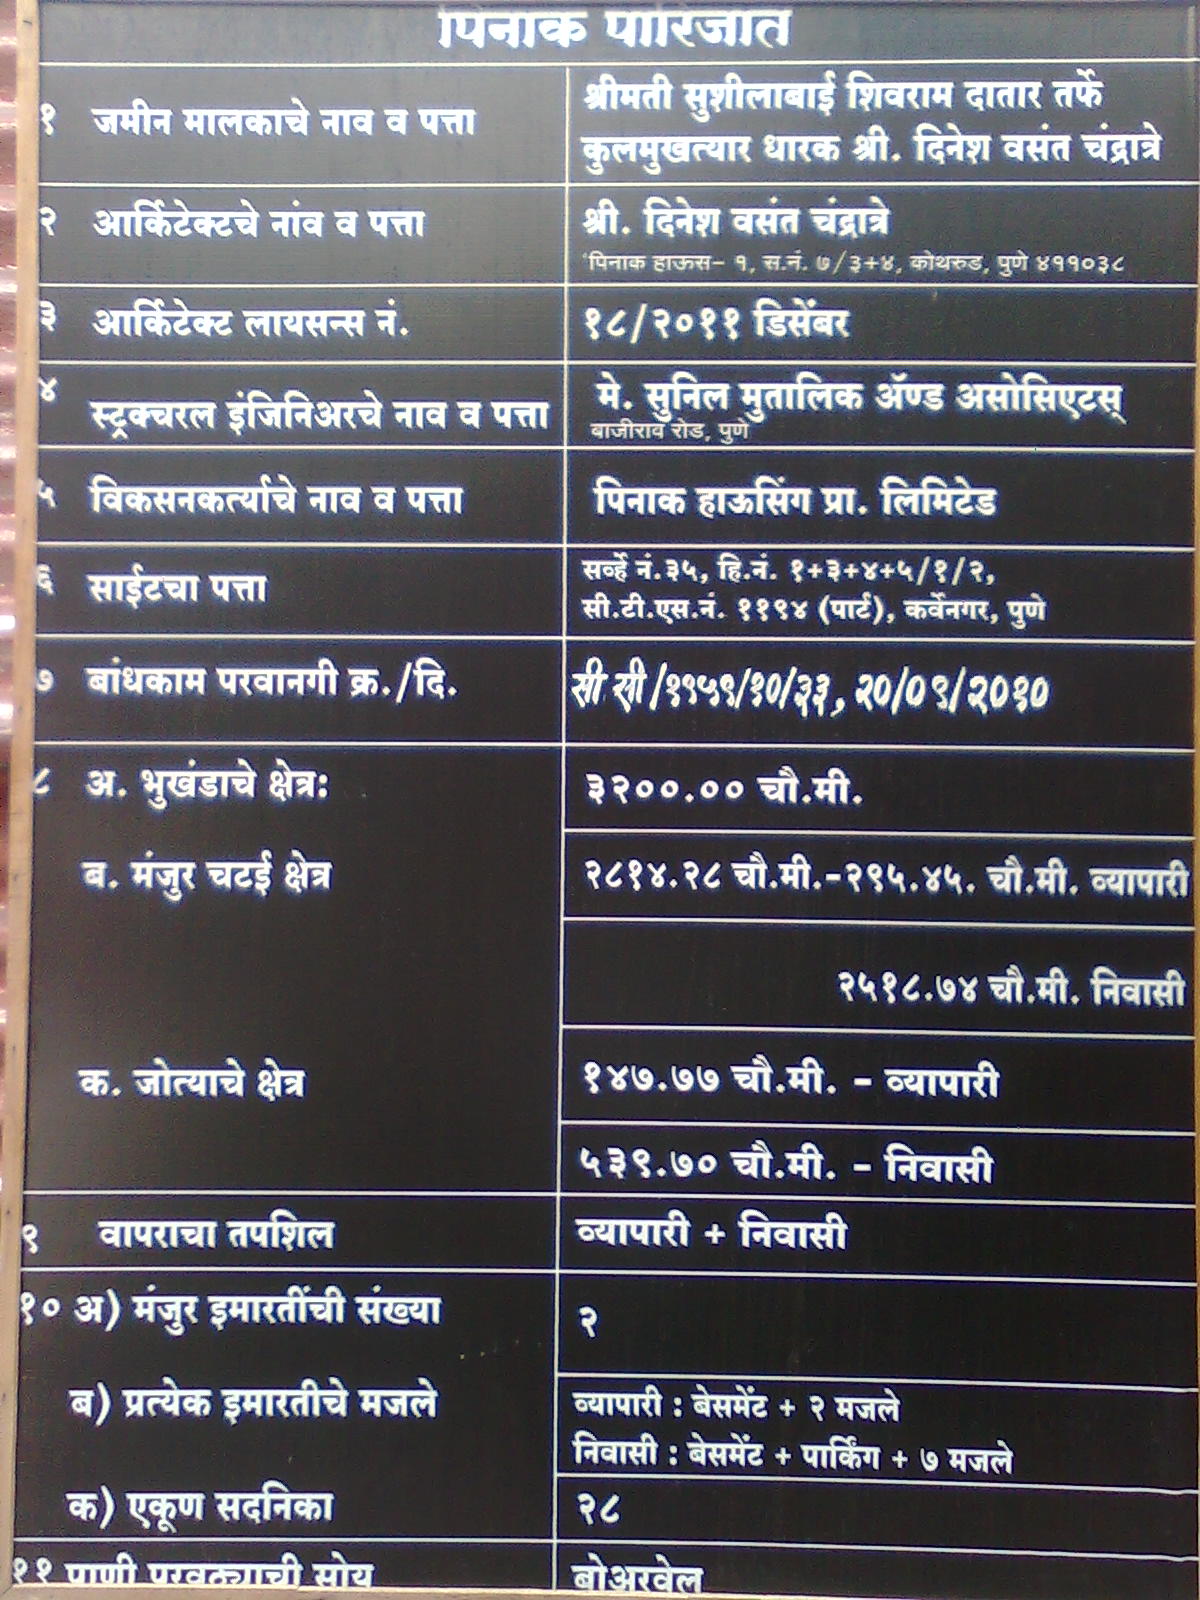 पिनाक पारिजात
१ जमीन मालकाचे नाव व पत्ता
श्रीमती सुशीलाबाई शिवराम दातार तर्फे
कुलमुखत्यार धारक श्री. दिनेश वसंत चंद्रात्रे
२ आर्किटेक्टचे नांव व पत्ता
श्री. दिनेश वसंत चंद्रात्रे
'पिनाक हाऊस- १, स.नं. ७/३+४, कोथरुड, पुणे ४११०३८
३ आर्किटेक्ट लायसन्स नं.
१८/२०११ डिसेंबर
४ स्ट्रक्चरल इंजिनिअरचे नाव व पत्ता
मे. सुनिल मुतालिक ॲण्ड असोसिएटस्
बाजीराव रोड, पुणे
५ विकसनकर्त्याचे नाव व पत्ता
पिनाक हाऊसिंग प्रा. लिमिटेड
६ साईटचा पत्ता
सर्व्हे नं.३५, हि.नं. १+३+४+५/१/२,
सी.टी.एस.नं. ११९४ (पार्ट), कर्वेनगर, पुणे
७ बांधकाम परवानगी क्र./दि.
सी सी/१९५९/१०/३३, २०/०९/२०१०
८ अ. भुखंडाचे क्षेत्र:
३२००.०० चौ.मी.
ब. मंजुर चटई क्षेत्र
२८१४.२८ चौ.मी.-२९५.४५. चौ.मी. व्यापारी
२५१८.७४ चौ.मी. निवासी
क. जोत्याचे क्षेत्र
१४७.७७ चौ.मी. - व्यापारी
५३९.७० चौ.मी. - निवासी
९ वापराचा तपशिल
व्यापारी + निवासी
१० अ) मंजुर इमारतींची संख्या
२
ब) प्रत्येक इमारतीचे मजले
व्यापारी : बेसमेंट + २ मजले
निवासी : बेसमेंट + पार्किंग + ७ मजले
क) एकूण सदनिका
२८
११ पाणी पुरवठ्याची सोय
बोअरवेल